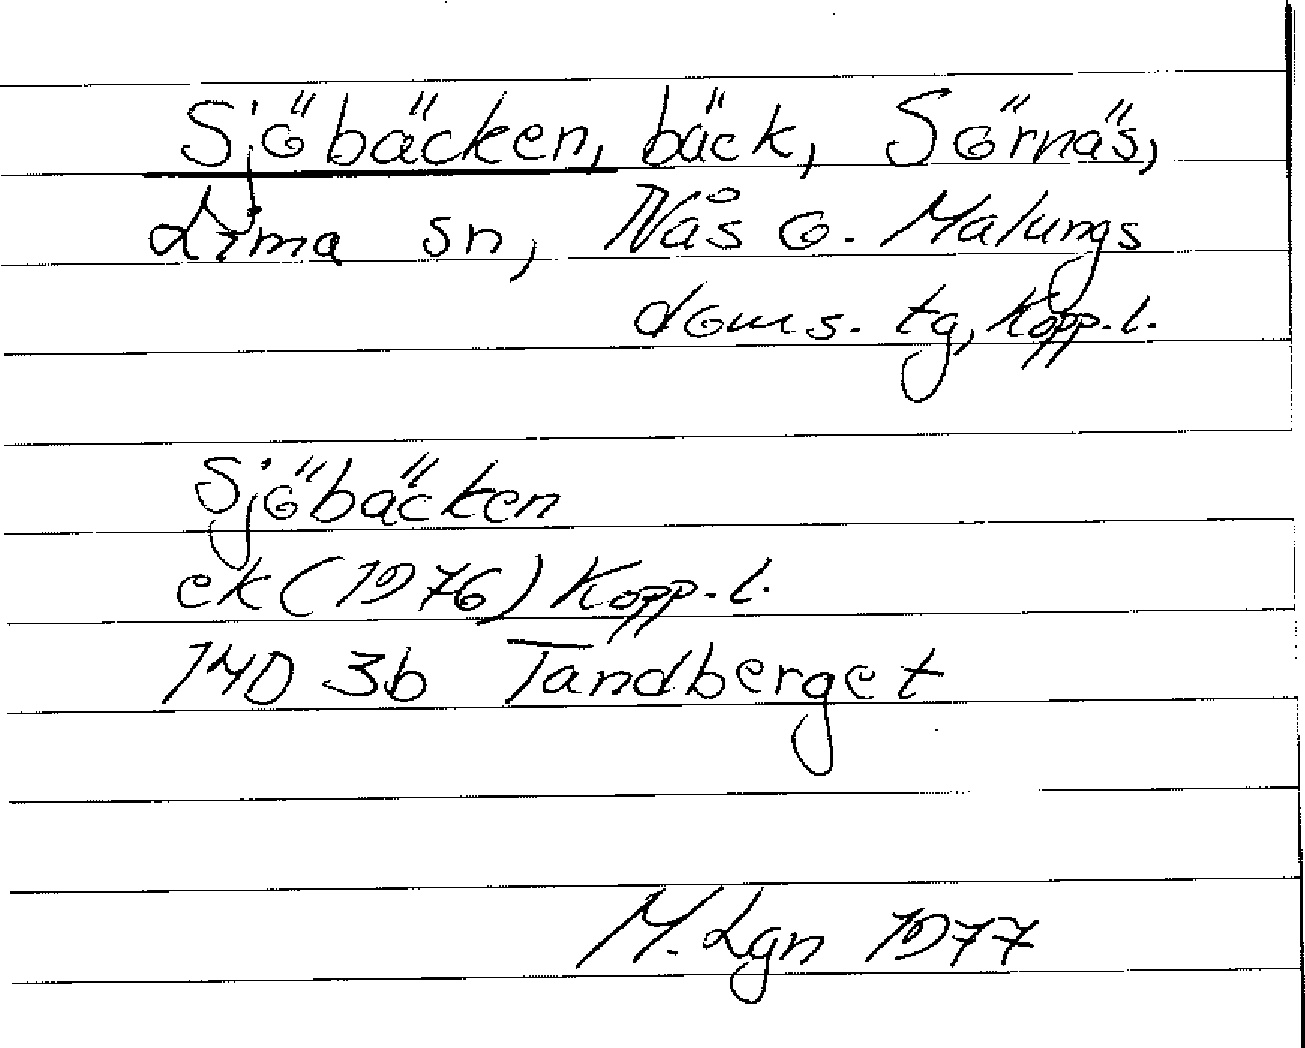 Sjöbäcken, bäck, Sörnäs,
Lima sn, Nås o. Malungs
doms. tg, Kopp. l.
Sjöbäcken
ek (1976) Kopp. l.
14D 3b Tandberget
M. Lgn 1977